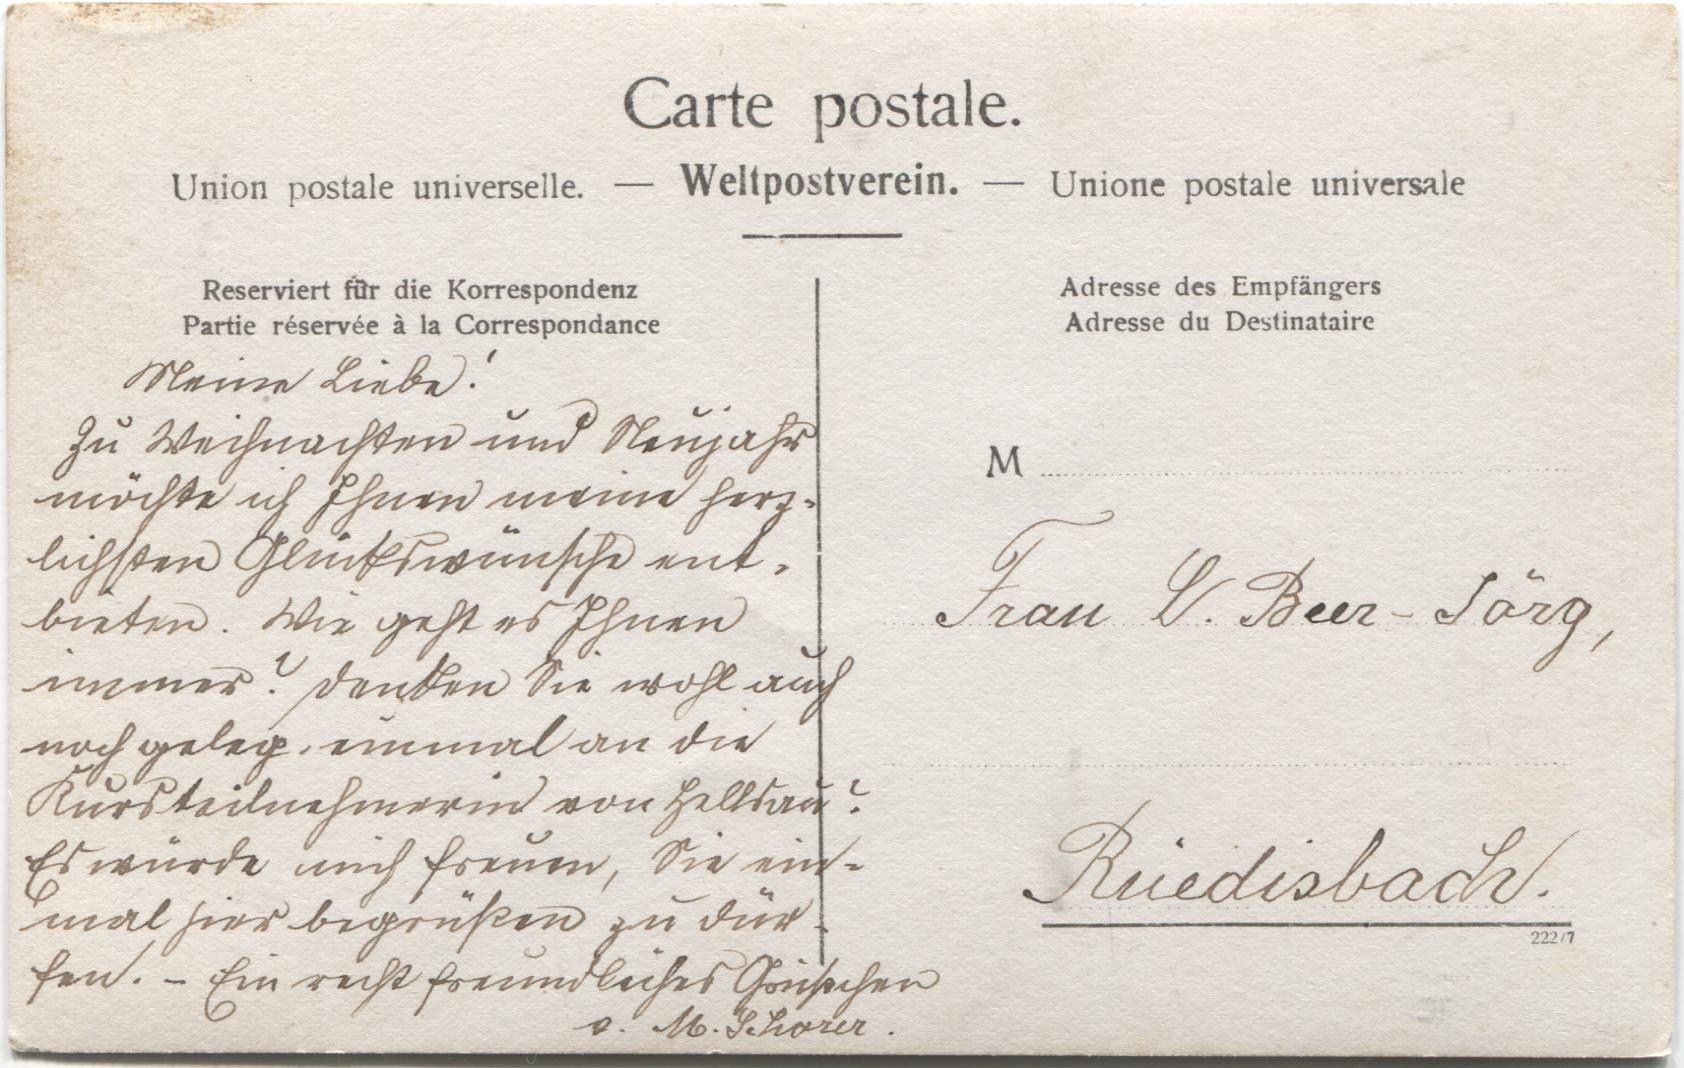 Carte postale.
Union postale universelle. — Weltpostverein. — Unione postale universale
Reserviert für die Korrespondenz
Partie réservée à la Correspondance
Meine Liebe!
Zu Weihnachten und Neujahr
möchte ich Ihnen meine herz-
lichsten Glückswünsche ent-
bieten. Wie geht es Ihnen
immer? Denken Sie wohl auch
noch geleg. einmal an die
Kursteilnehmerin von Hellsau?
Es würde mich freuen, Sie ein-
mal hier begrüßen zu dür-
fen. – Ein recht freundliches Grüßchen
v. M. Schorer.
Adresse des Empfängers
Adresse du Destinataire
M
Frau L. Beer-Jörg,
Rüedisbach.
222/7